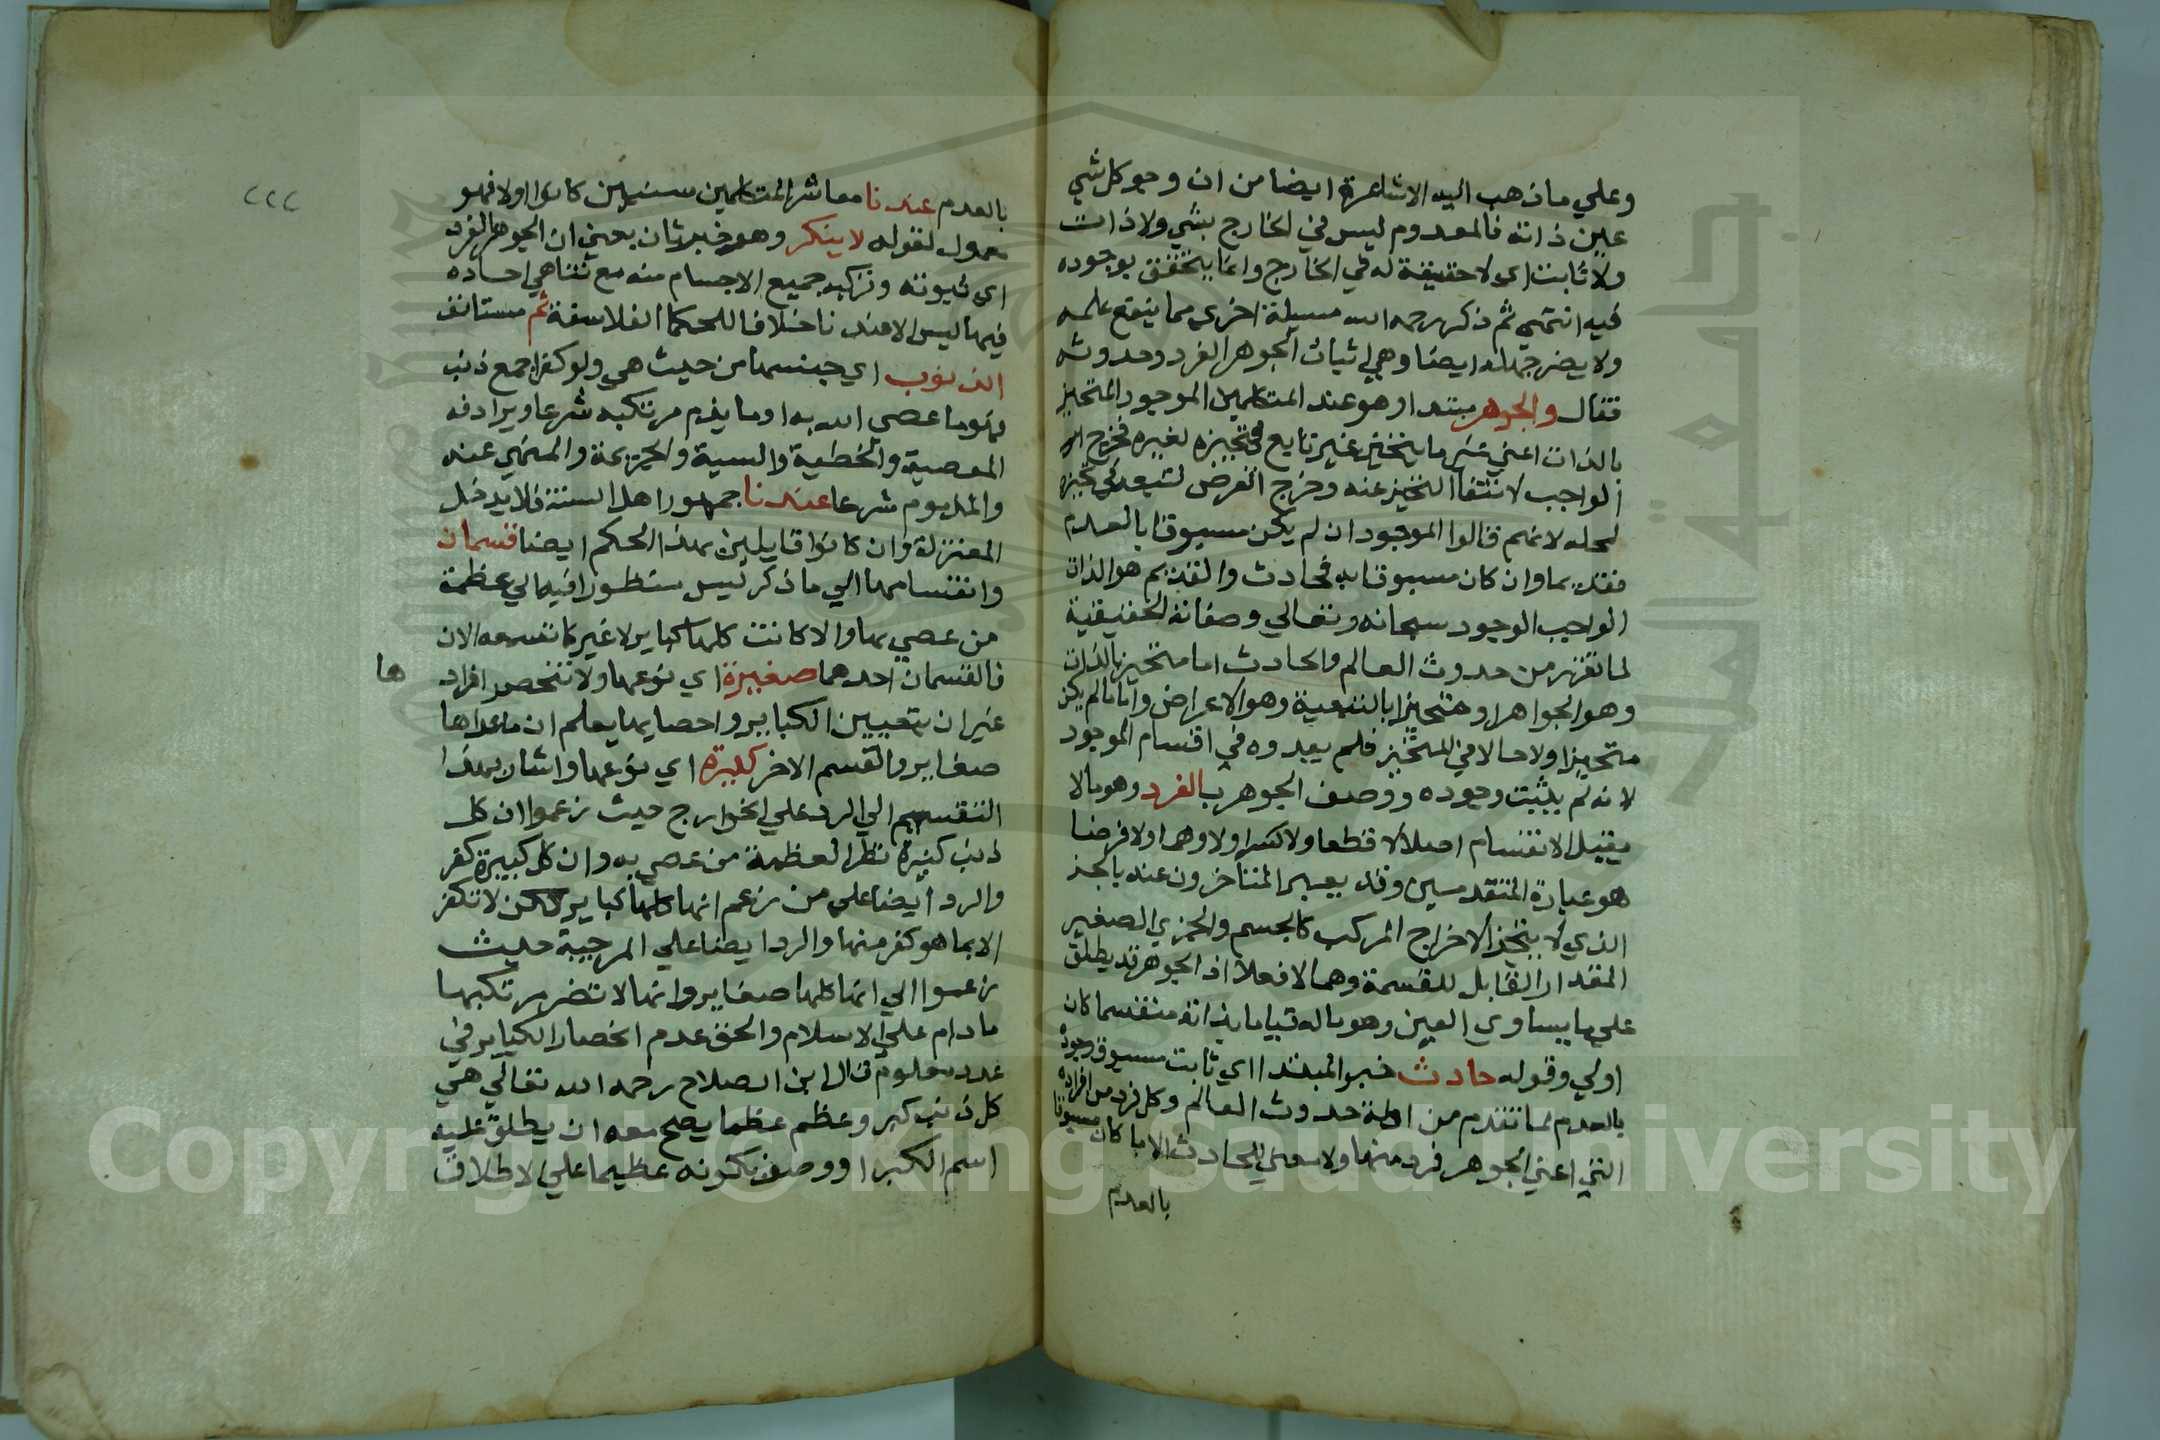 وعلي ماذهب اليه الاشاعرة ايضا من ان وجو كل شي
عين ذاته فالمعدوم ليس في الخارج بشي ولا ذات
ولا ثابت اي لا حقيقة له في الخارج وانما يتحقق بوجوده
فيه انتهي ثم ذكر رحمه الله مسيلة اخري مما ينفع علمه
ولا يضر جهله ايضا وهي اثبات الجوهر الفرد وحدوثه
فقال والجوهر مبتدا وهو عند المتكلمين الموجود المتحيز
بالذات اعني متحيز غير تابع في تحيزه لغيره فخرج
الواجب لانتفا التحيز عنه وخرج العرض لتبعيته في تحيزه
لمحله لانهم قالوا الموجود ان لم يكن مسبوقا بالعدم
فقديما وان كان مسبوقا به فحادث والقديم هو الذات
الواجب الوجود سبحانه وتعالي وصفاته الحقيقية
لما تقرر من حدوث العالم والحادث اما متحيز بالذات
وهو الجواهر او متحيزا بالتبعية وهو الاعراض واما ما لم يكن
متحيزا ولا حالا في المتحيز فلم يعدوه في اقسام الموجود
لانه لم يثبت وجوده ووصف الجوهر بالفرد وهو مالا
يقبل الانقسام اصلا لا قطعا ولا كسرا ولا وهما ولا فرضا
هو عبارة المتقدمين وقد يعبر المتاخرون عنه بالجز
الذي لا يتجزا لاخراج المركب كالجسم والجزي الصغير
المقدار القابل للقسمة وهما لا فعلا اذ الجوهر قد يطلق
علي ما يساوي العين وهو ماله قيام بذاته منقسما كان
اولي وقوله حادث خبر المبتدا اي ثابت مسبوق وجوده
بالعدم لما تقدم من ادلة حدوث العالم وكل فرد من افراده
التي اعني الجوهر فرد منها ولا معني للحادث الا ما كان مسبوقا
بالعدم
٢٢٢
بالعدم عندنا معاشر المتكلمين سنيين كانوا اولا فهو
معمول لقوله لا ينكر وهو خبر ثان يعني ان الجوهر الفرد
اي ثبوته وتركب جميع الاجسام منه مع تناهي احاده
فيها ليس الا عندنا خلافا للحكما الفلاسفة ثم مستانف
الذنوب اي جنسها من حيث هي ولو كفرا جمع ذنب
وهو ما عصي الله به او ما يذم مرتكبه شرعا ويرادفه
المعصية والخطية والسية والجريمة والمنهي عنه
والمذموم شرعا عندنا جمهور اهل السنة فلا يدخل
المعتزلة وان كانوا قايلين بهذا الحكم ايضا قسمان
وانقسامها الي ما ذكر ليس منظورا فيه الي عظمة
من عصي بها والا كانت كلها كباير لا غير كما تسمعه الان
فالقسمان احدهما صغيرة اي نوعها ولا تنحصر افراد
ها
غير ان بتعيين الكباير واحصايها يعلم ان ما عداها
صغاير والقسم الاخر كبيرة اي نوعها واشار بهذا
التقسيم الي الرد علي الخوارج حيث زعموا ان كل
ذنب كبيرة نظرا لعظمة من عصي به وان كل كبيرة كفر
والرد ايضا علي من زعم انها كلها كباير لكن لا تكفر
الا بما هو كفر منها والرد ايضا علي المرجية حيث
زعموا الي انها كلها صغاير وانها لا تضر مرتكبها
ما دام علي الاسلام والحق عدم انحصار الكباير في
عدد معلوم قال ابن الصلاح رحمه الله تعالي هي
كل ذنب كبر وعظم عظما يصح معه ان يطلق عليه
اسم الكبر او وصف بكونه عظيما علي الاطلاق
Copyright © King Saud University